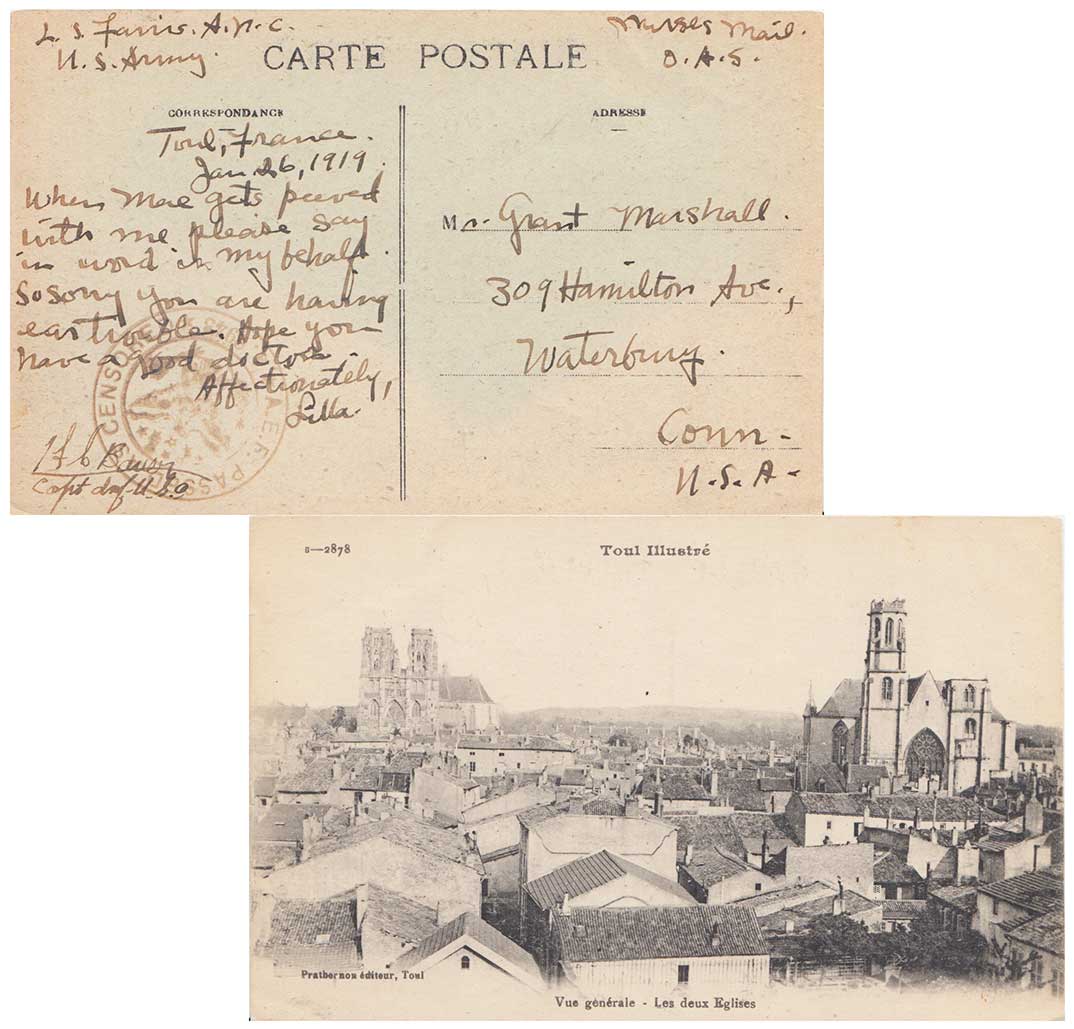 L. S. Farris. A.N.C.
U.S. Army.
Nurses Mail.
O.A.S.
CARTE POSTALE
CORRESPONDANCE
ADRESSE
Toul, France.
Jan 26, 1919.
When Mae gets peeved
with me please say
in word in my behalf.
So sorry you are having
ear trouble. Hope you
have a good doctor.
Affectionately,
Lilla.
CENSORED A.E.F. PASSED
Capt
Mr. Grant Marshall.
309 Hamilton Ave.,
Waterbury.
Conn-
U.S.A-
B—2878
Toul Illustré
Prathernon éditeur, Toul
Vue générale - Les deux Eglises